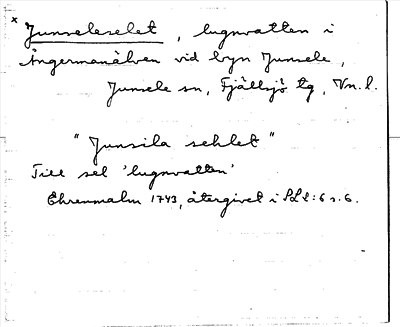 x Junseleselet, lugnvatten i
Ångermanälven vid byn Junsele,
Junsele sn, Fjällsjö tg, Vn. l.
"Junsila sehlet"
Till sel 'lugnvatten'
Ehrenmalm 1743, återgivet i SLl:6 s. 6.